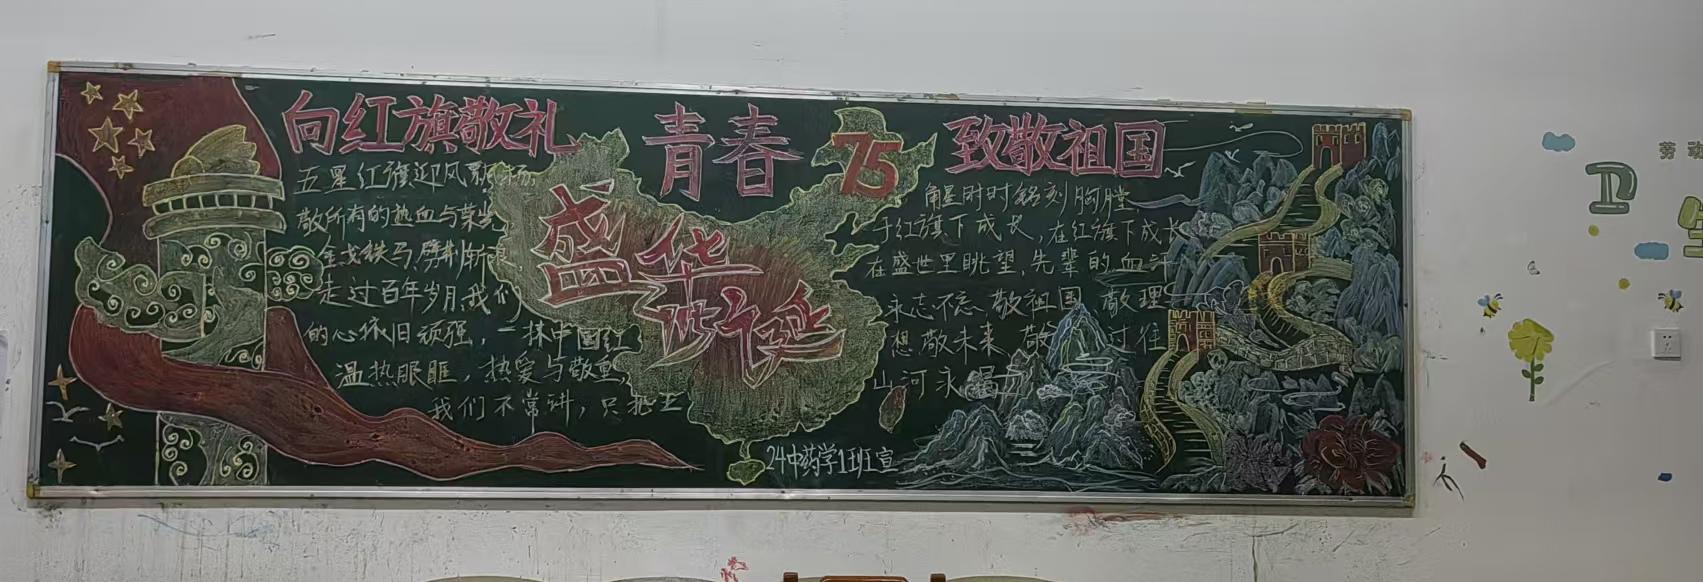 向红旗敬礼
五星红旗迎风飘扬
敬所有的热血与荣光
金戈铁马,劈荆斩浪,
走过百年岁月,我们
的心依旧顽强,一抹中国红
温热眼眶,热爱与敬重,
我们不常讲,只把
青春
75
盛华
诗篇
致敬祖国
角星时时铭刻胸膛
于红旗下成长,在红旗下成长
在盛世里眺望,先辈的血汗
永志不忘、敬祖国 敬理
想 敬未来 敬 过往
山河永
24中药学1班宣
卫
生
劳动